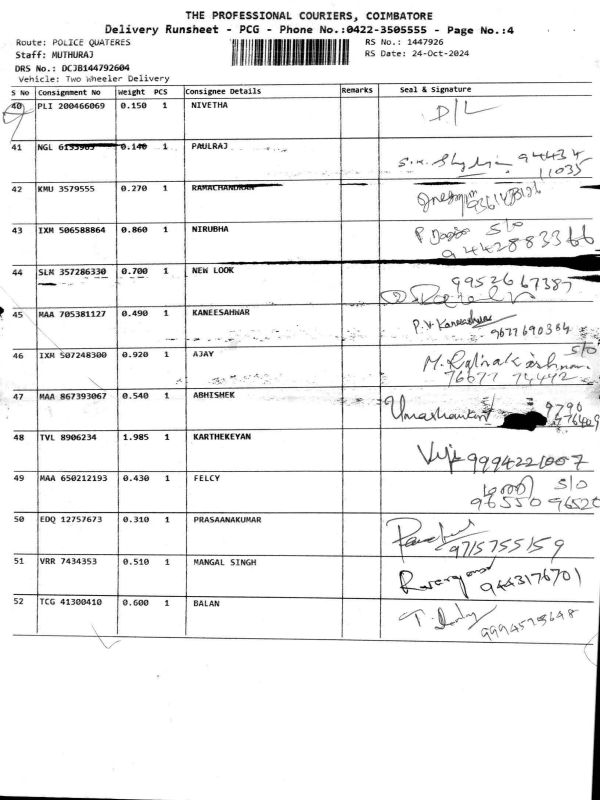 THE PROFESSIONAL COURIERS, COIMBATORE
Delivery Runsheet - PCG - Phone No.:0422-3505555 - Page No.:4
Route: POLICE QUATERES RS No.: 1447926
Staff: MUTHURAJ RS Date: 24-Oct-2024
DRS No.: DCJB144792604
Vehicle: Two Wheeler Delivery
S No Consignment No Weight PCS Consignee Details Remarks Seal & Signature
40 PLI 200466069 0.150 1 NIVETHA D/L
41 NGL 0.140 1 PAULRAJ 94434
11035
42 KMU 3579555 0.270 1 RAMACHANDRAN
43 IXM 506588864 0.860 1 NIRUBHA S/O
9442883366
44 SLM 357286330 0.700 1 NEW LOOK 9952667387
45 MAA 705381127 0.490 1 KANEESAHWAR P.V. Kaneeshwar
9677690364
46 IXM 507248300 0.920 1 AJAY S/O
76677 74442
47 MAA 867393067 0.540 1 ABHISHEK 9790
48 TVL 8906234 1.985 1 KARTHEKEYAN 9994221007
49 MAA 650212193 0.430 1 FELCY S/O
96550 96520
50 EDQ 12757673 0.310 1 PRASAANAKUMAR
9715755159
51 VRR 7434353 0.510 1 MANGAL SINGH
9443176701
52 TCG 41300410 0.600 1 BALAN